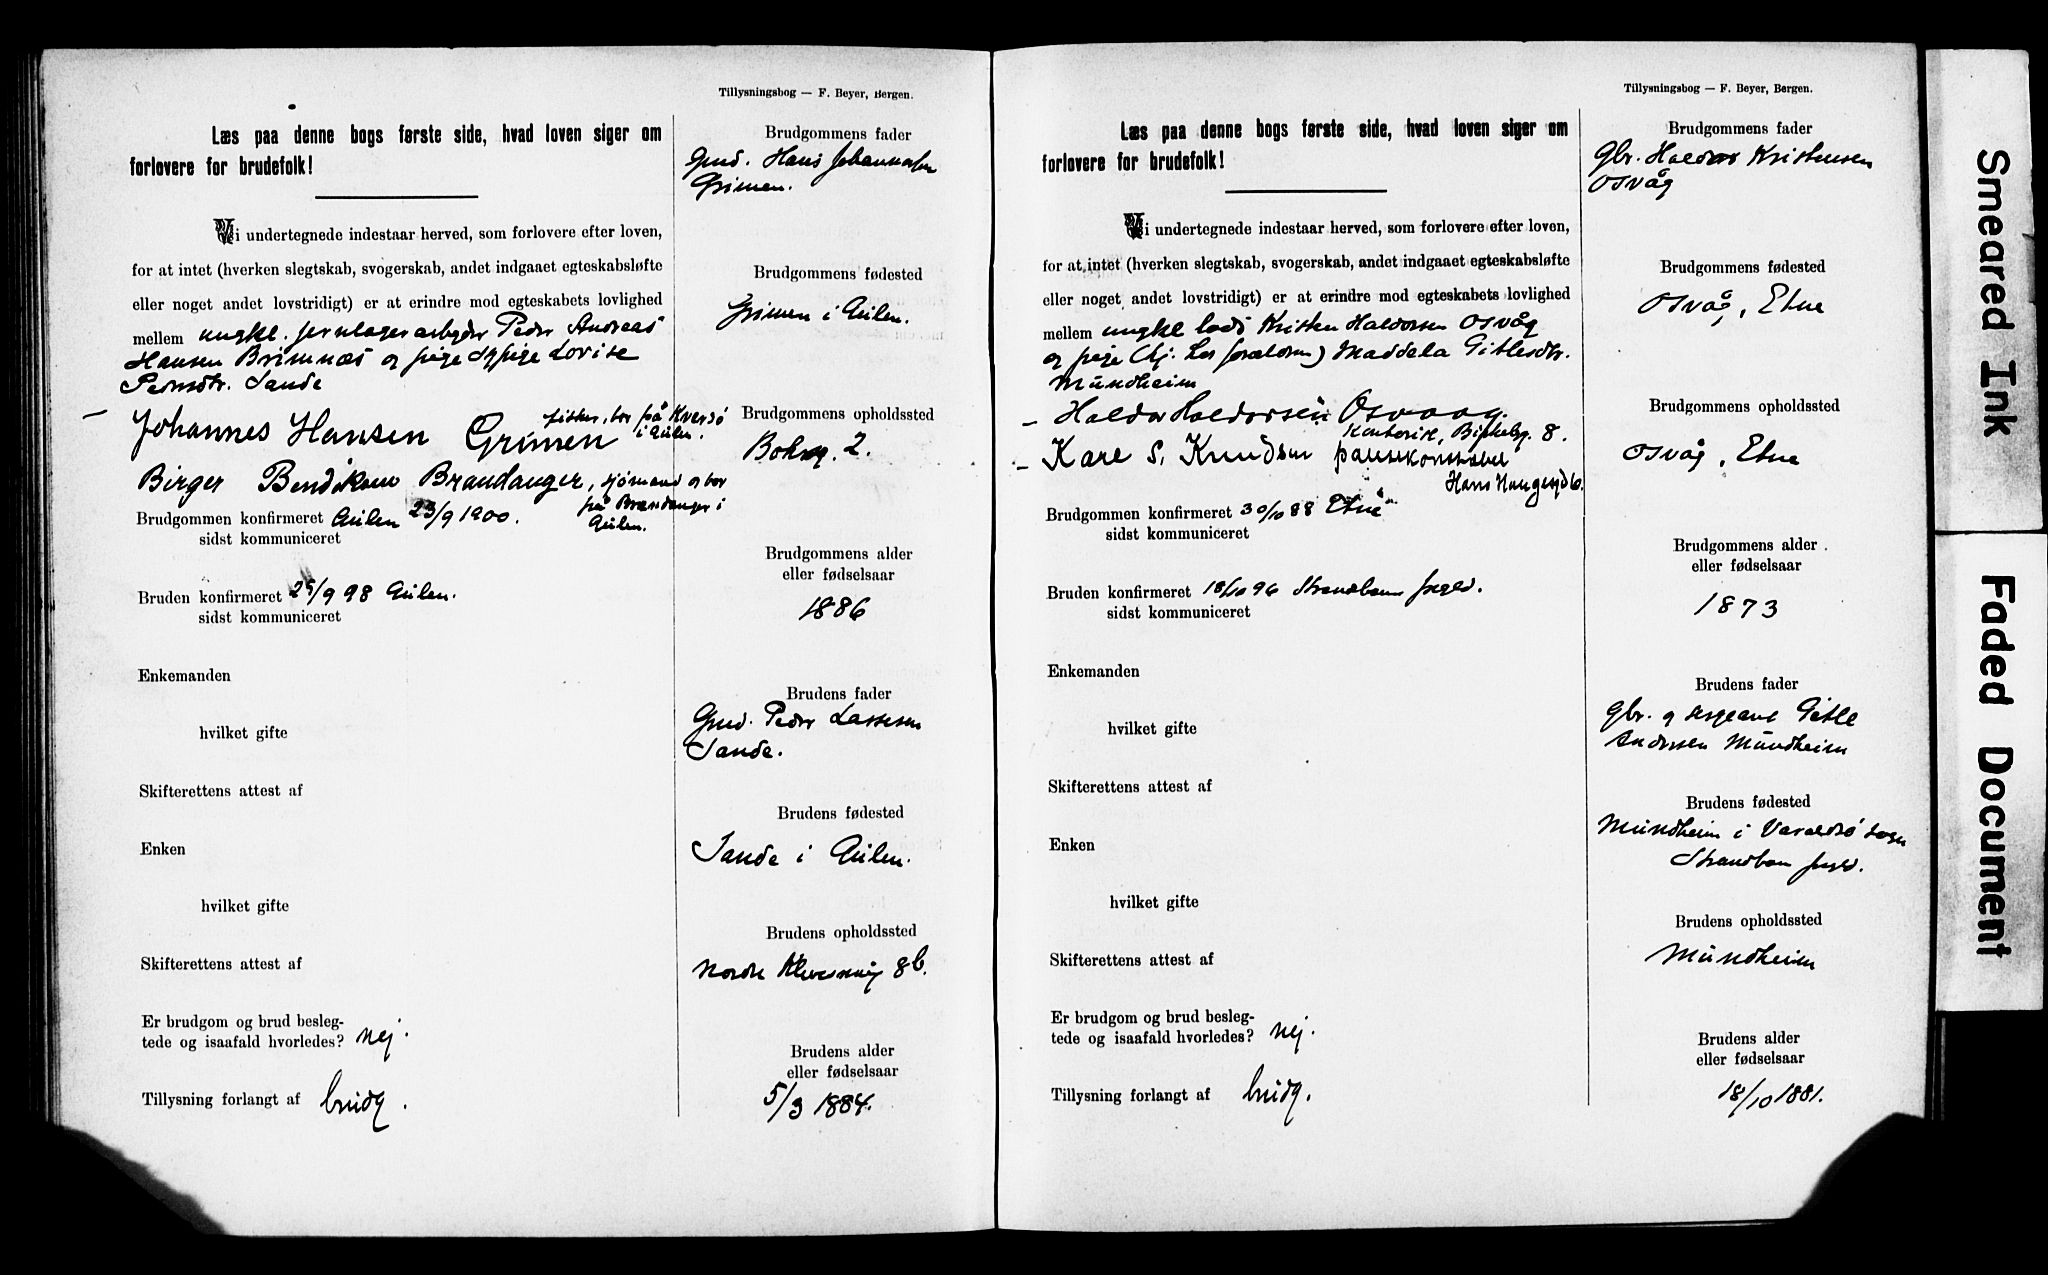 Tillysningsbog — F. Beyer, Bergen.
Læs paa denne bogs første side, hvad loven siger om
forlovere for brudefolk!
Vi undertegnede indestaar herved, som forlovere efter loven,
for at intet (hverken slegtskab, svogerskab, andet indgaaet egteskabsløfte
eller noget andet lovstridigt) er at erindre mod egteskabets lovlighed
mellem ungkl. jernlagerarbeyder Peder Andreas
Hansen Brimnæs og pige sypige Lovise
Pedersdtr. Sande
Johannes Hansen Grimen fisker, bor på Kversø
i Gulen.
Birger Bendiksen Brandanger, sjømand og bor
på Brandanger i
Gulen.
Brudgommen konfirmeret Gulen 23/9 1900.
sidst kommuniceret
Bruden konfirmeret 25/9 98 Gulen.
sidst kommuniceret
Enkemanden
hvilket gifte
Skifterettens attest af
Enken
hvilket gifte
Skifterettens attest af
Er brudgom og brud besleg-
tede og isaafald hvorledes? nej.
Tillysning forlangt af brudg.
Brudgommens fader
Gmd. Hans Johannesen
Grimen.
Brudgommens fødested
Grimen i Gulen.
Brudgommens opholdssted
2.
Brudgommens alder
eller fødselsaar
1886
Brudens fader
Gmd. Peder Lassesen
Sande.
Brudens fødested
Sande i Gulen.
Brudens opholdssted
8b.
Brudens alder
eller fødselsaar
5/3 1884.
Tillysningsbog — F. Beyer, Bergen.
Læs paa denne bogs første side, hvad loven siger om
forlovere for brudefolk!
Vi undertegnede indestaar herved, som forlovere efter loven,
for at intet (hverken slegtskab, svogerskab, andet indgaaet egteskabsløfte
eller noget andet lovstridigt) er at erindre mod egteskabets lovlighed
mellem ungkl lods Kristen Haldorsen Osvåg
og pige (hj. hos forældren) Maddela Gitlesdtr.
Mundheim
Haldor Haldorsen Osvaag.
Kontorist, 8.
Kare S. Knudsen
Hans Haugesgd 6.
Brudgommen konfirmeret 30/10 88 Etne
sidst kommuniceret
Bruden konfirmeret 18/10 96 Strandbarm prgld.
sidst kommuniceret
Enkemanden
hvilket gifte
Skifterettens attest af
Enken
hvilket gifte
Skifterettens attest af
Er brudgom og brud besleg-
tede og isaafald hvorledes? nej.
Tillysning forlangt af brudg.
Brudgommens fader
Gbr. Haldor Kristensen
Osvåg
Brudgommens fødested
Osvåg, Etne
Brudgommens opholdssted
Osvåg, Etne
Brudgommens alder
eller fødselsaar
1873
Brudens fader
Gbr. og Gitle
Andersen Mundheim
Brudens fødested
Mundheim i Varaldsø sogn
Strandbarm prgld.
Brudens opholdssted
Mundheim
Brudens alder
eller fødselsaar
18/10 1881.
Smeared Ink
Faded Document